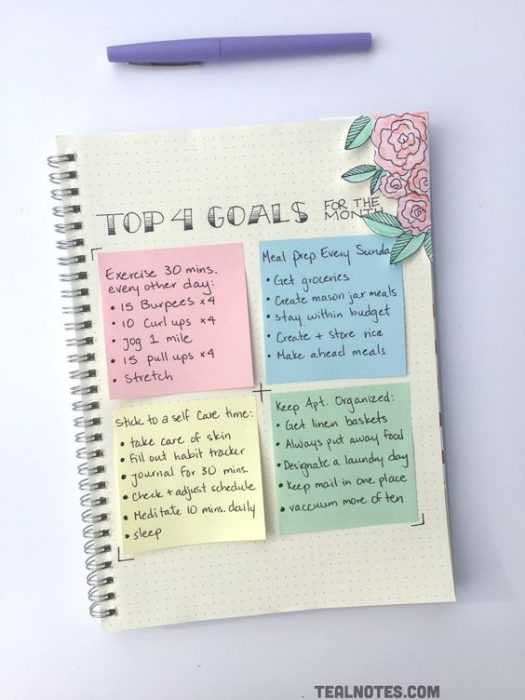 TOP 4 GOALS
FOR THE
MONTH
Exercise 30 mins.
every other day:
• 15 Burpees x4
• 10 Curl ups x4
• jog 1 mile
• 15 pull ups x4
• Stretch
Meal Prep Every Sunda
• Get groceries
• Create mason jar meals
• stay within budget
• Create + store rice
• Make ahead meals
Stick to a self care time:
• take care of skin
• Fill out habit tracker
• journal for 30 mins.
• Check + adjust schedule
• Meditate 10 mins. daily
• sleep
Keep Apt. Organized:
• Get linen baskets
• Always put away food
• Designate a laundry day
• Keep mail in one place
• vaccuum more often
TEALNOTES.COM